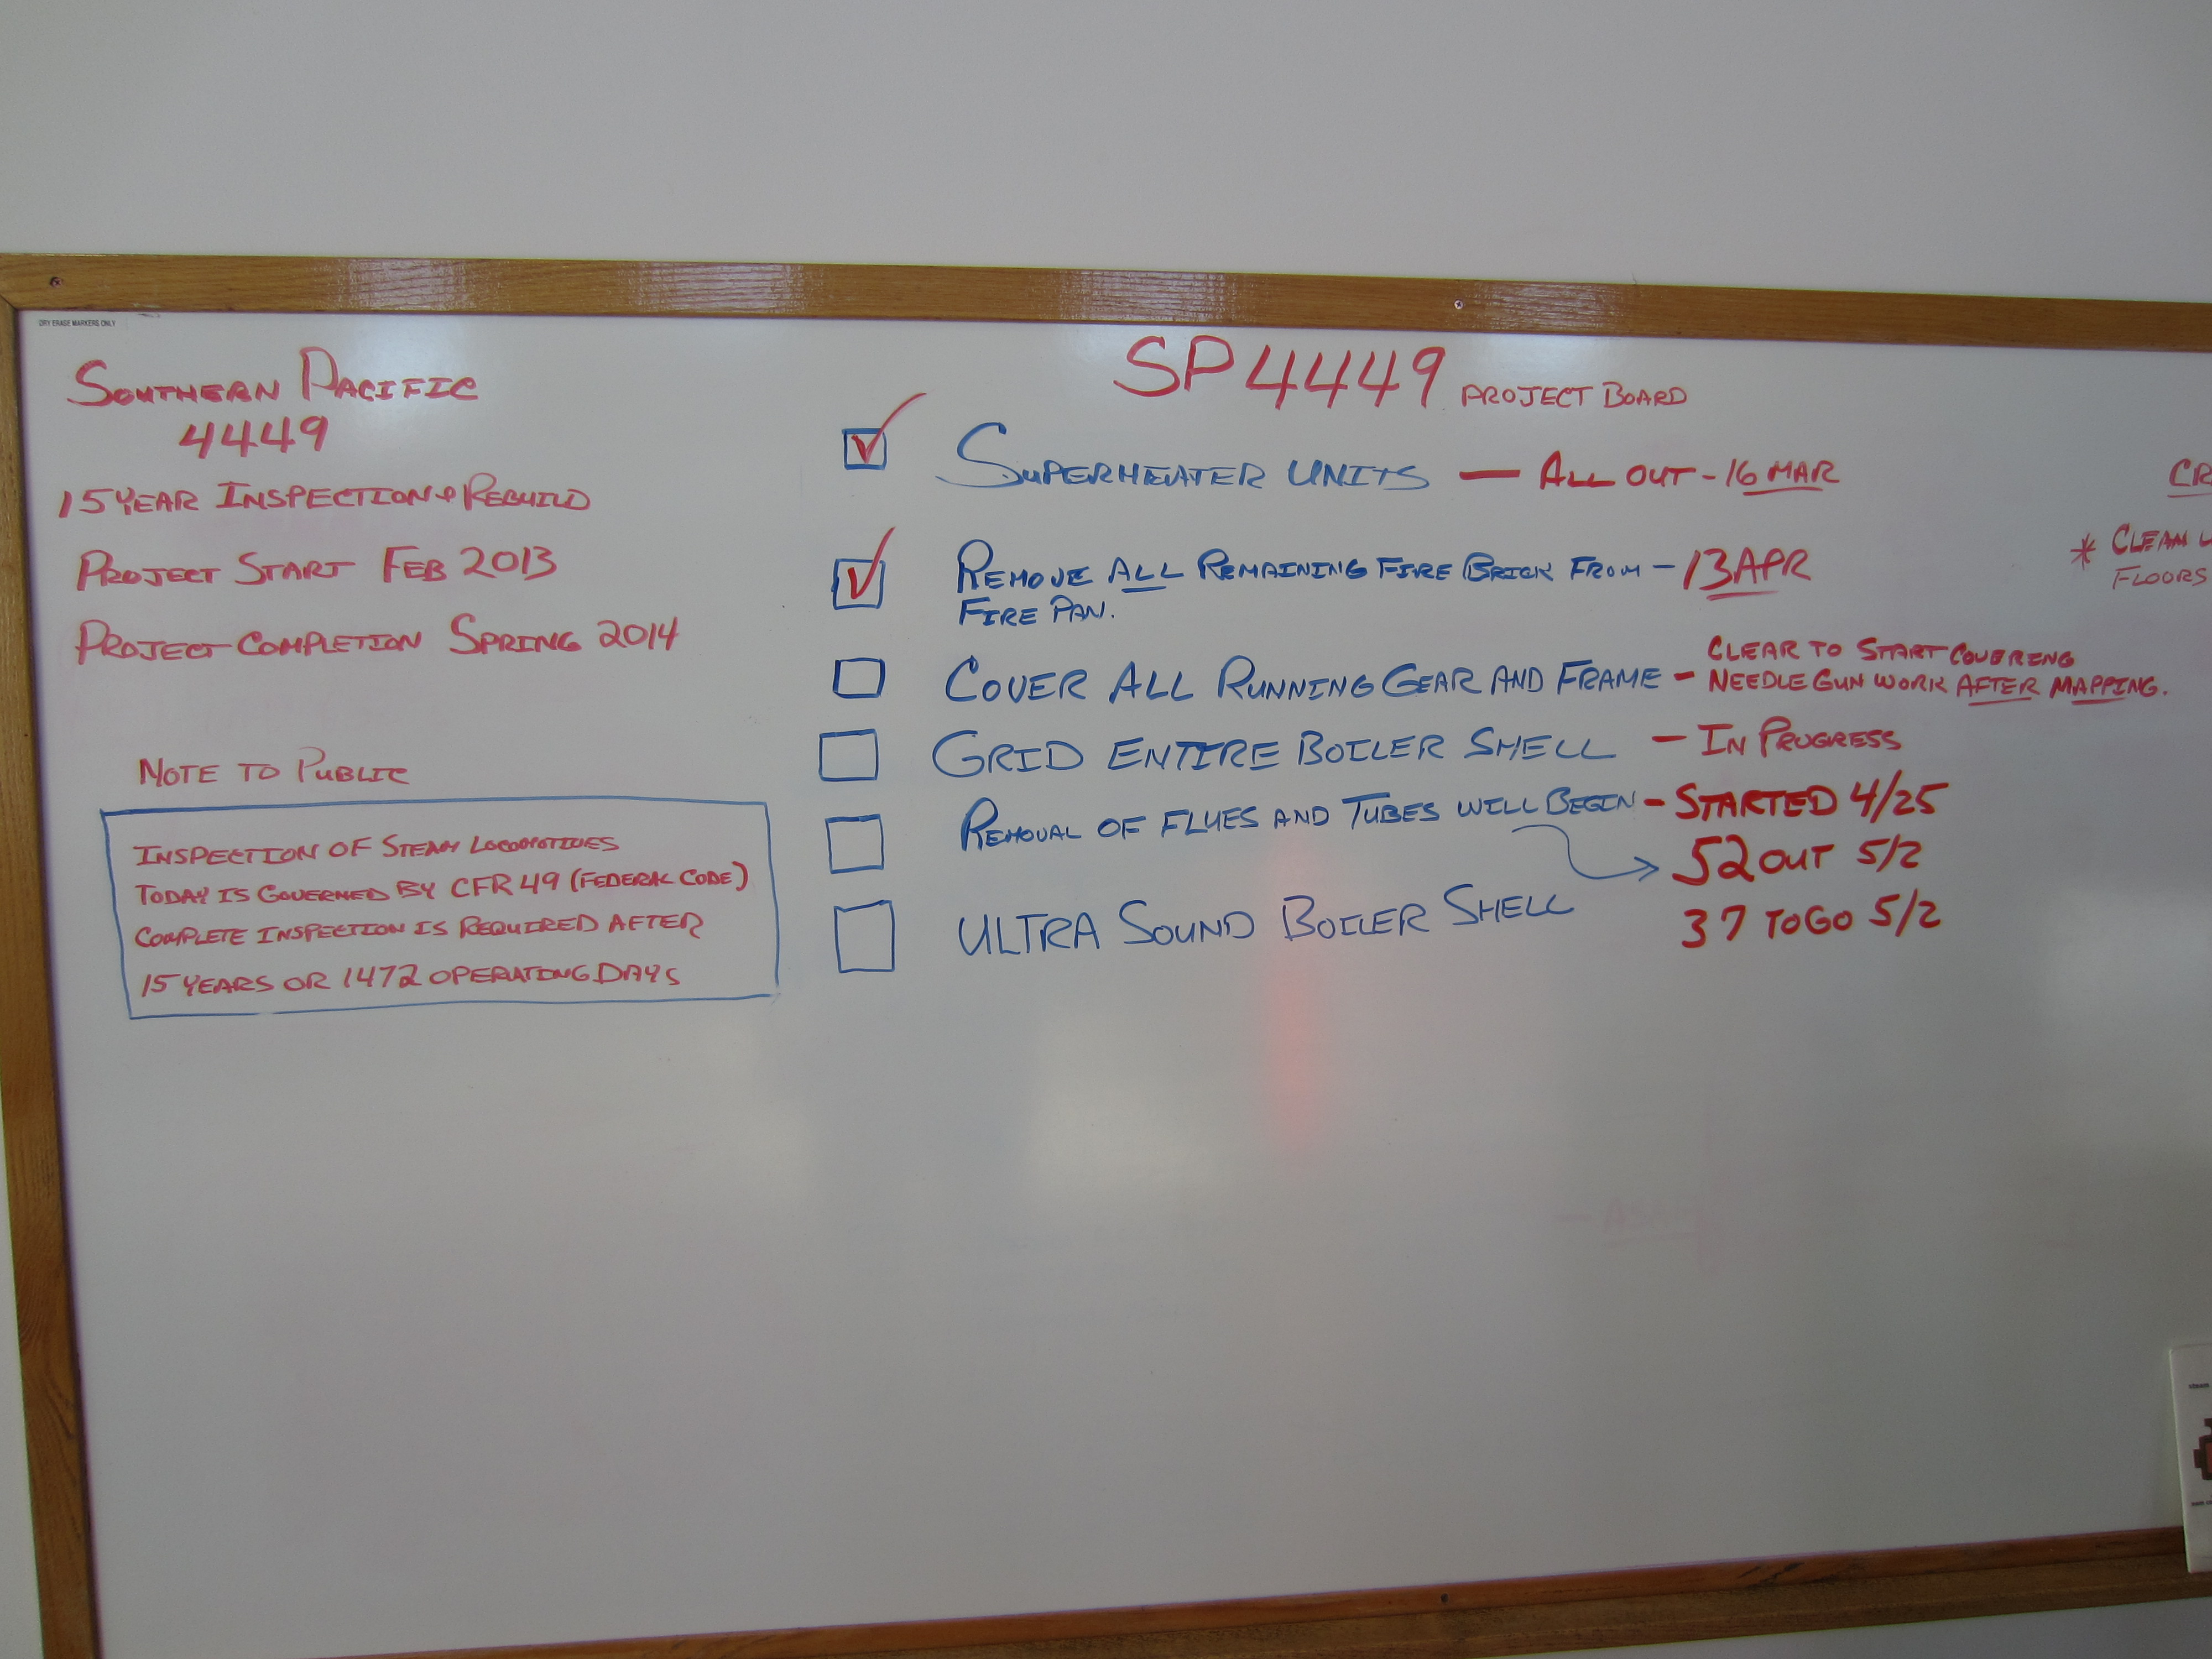 DRY ERASE MARKERS ONLY
SOUTHERN PACIFIC
4449
15 YEAR INSPECTION & REBUILD
PROJECT START FEB 2013
PROJECT COMPLETION SPRING 2014
NOTE TO PUBLIC
INSPECTION OF STEAM LOCOMOTIVES
TODAY IS GOVERNED BY CFR 49 (FEDERAL CODE)
COMPLETE INSPECTION IS REQUIRED AFTER
15 YEARS OR 1472 OPERATING DAYS
SP 4449 PROJECT BOARD
SUPERHEATER UNITS — ALL OUT - 16 MAR
REMOVE ALL REMAINING FIRE BRICK FROM - 13 APR
FIRE PAN.
COVER ALL RUNNING GEAR AND FRAME - CLEAR TO START COVERING
NEEDLE GUN WORK AFTER MAPPING.
GRID ENTIRE BOILER SHELL - IN PROGRESS
REMOVAL OF FLUES AND TUBES WILL BEGIN - STARTED 4/25
52 OUT 5/2
ULTRA SOUND BOILER SHELL
37 TO GO 5/2
* CLEAN
FLOORS